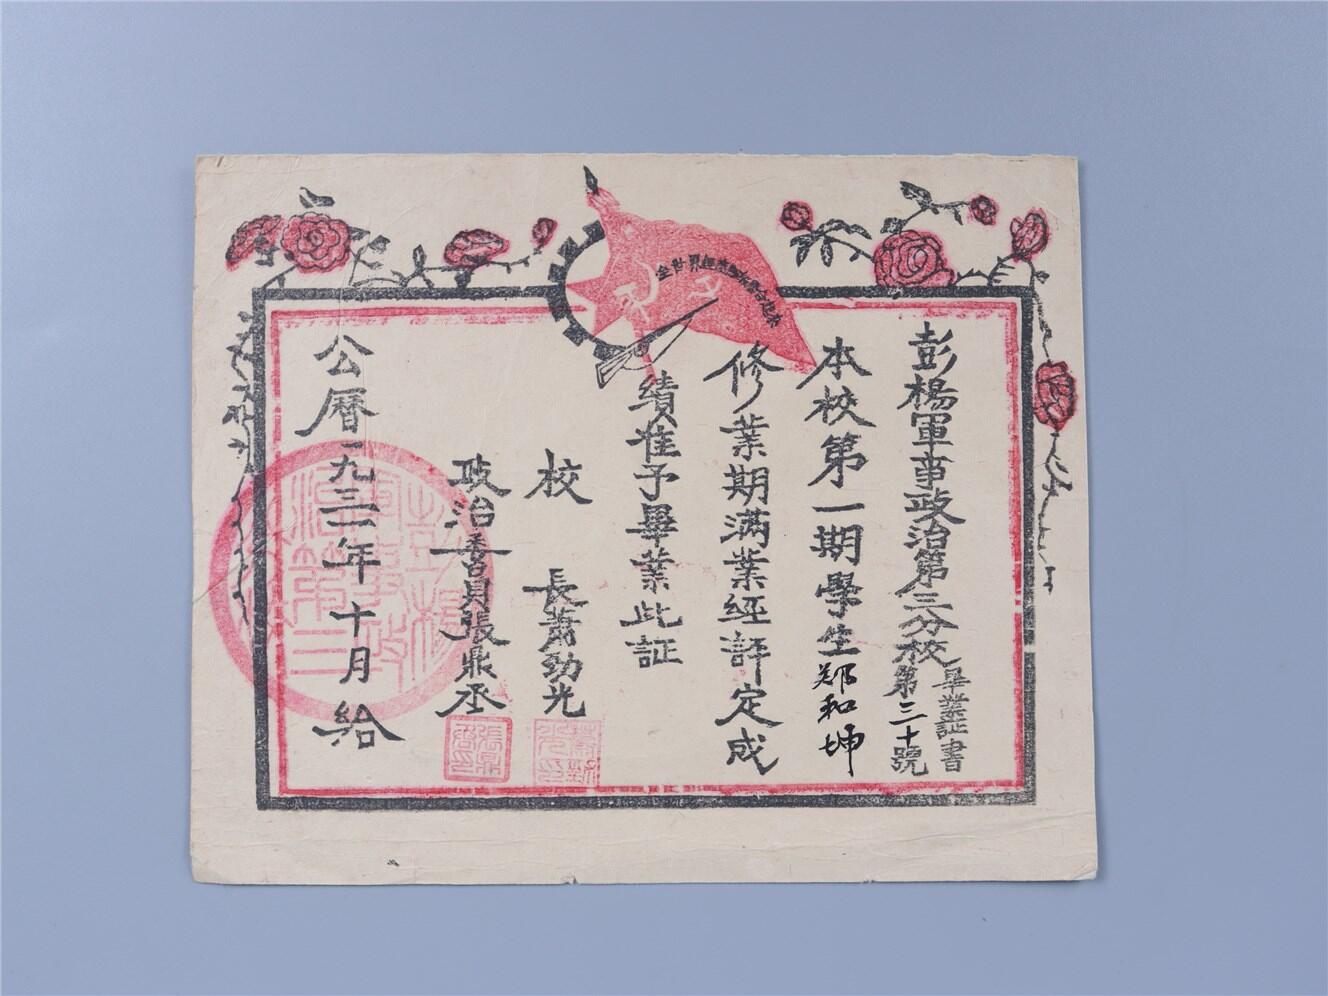 彭楊軍事政治第三分校
畢業証書
第三十號
本校第一期學生鄭和坤
修業期滿業經評定成
績准予畢業此証
校長蕭勁光
政治委員張鼎丞
公曆一九三一年十月給
全世界無產階級聯合起來